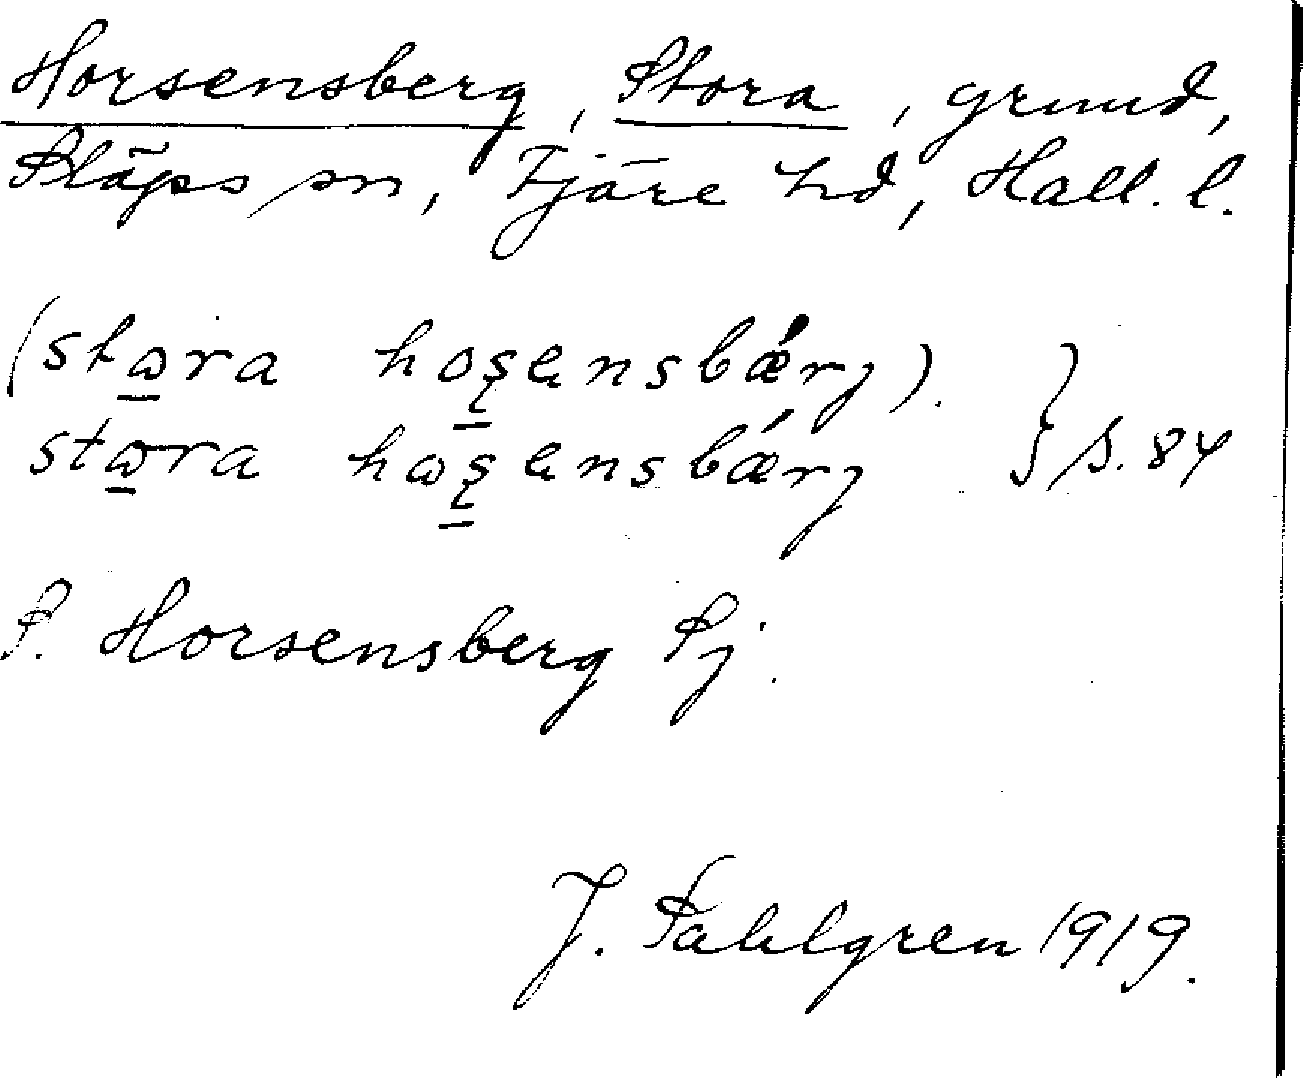 Horsensberg, Stora, grund,
Släps sn, Fjäre hd, Hall. l.
(stɷra hoʂensbǽrj).
stɷra hɷʂensbǽrj } s. 84
S. Horsensberg Sj.
J. Sahlgren 1919.